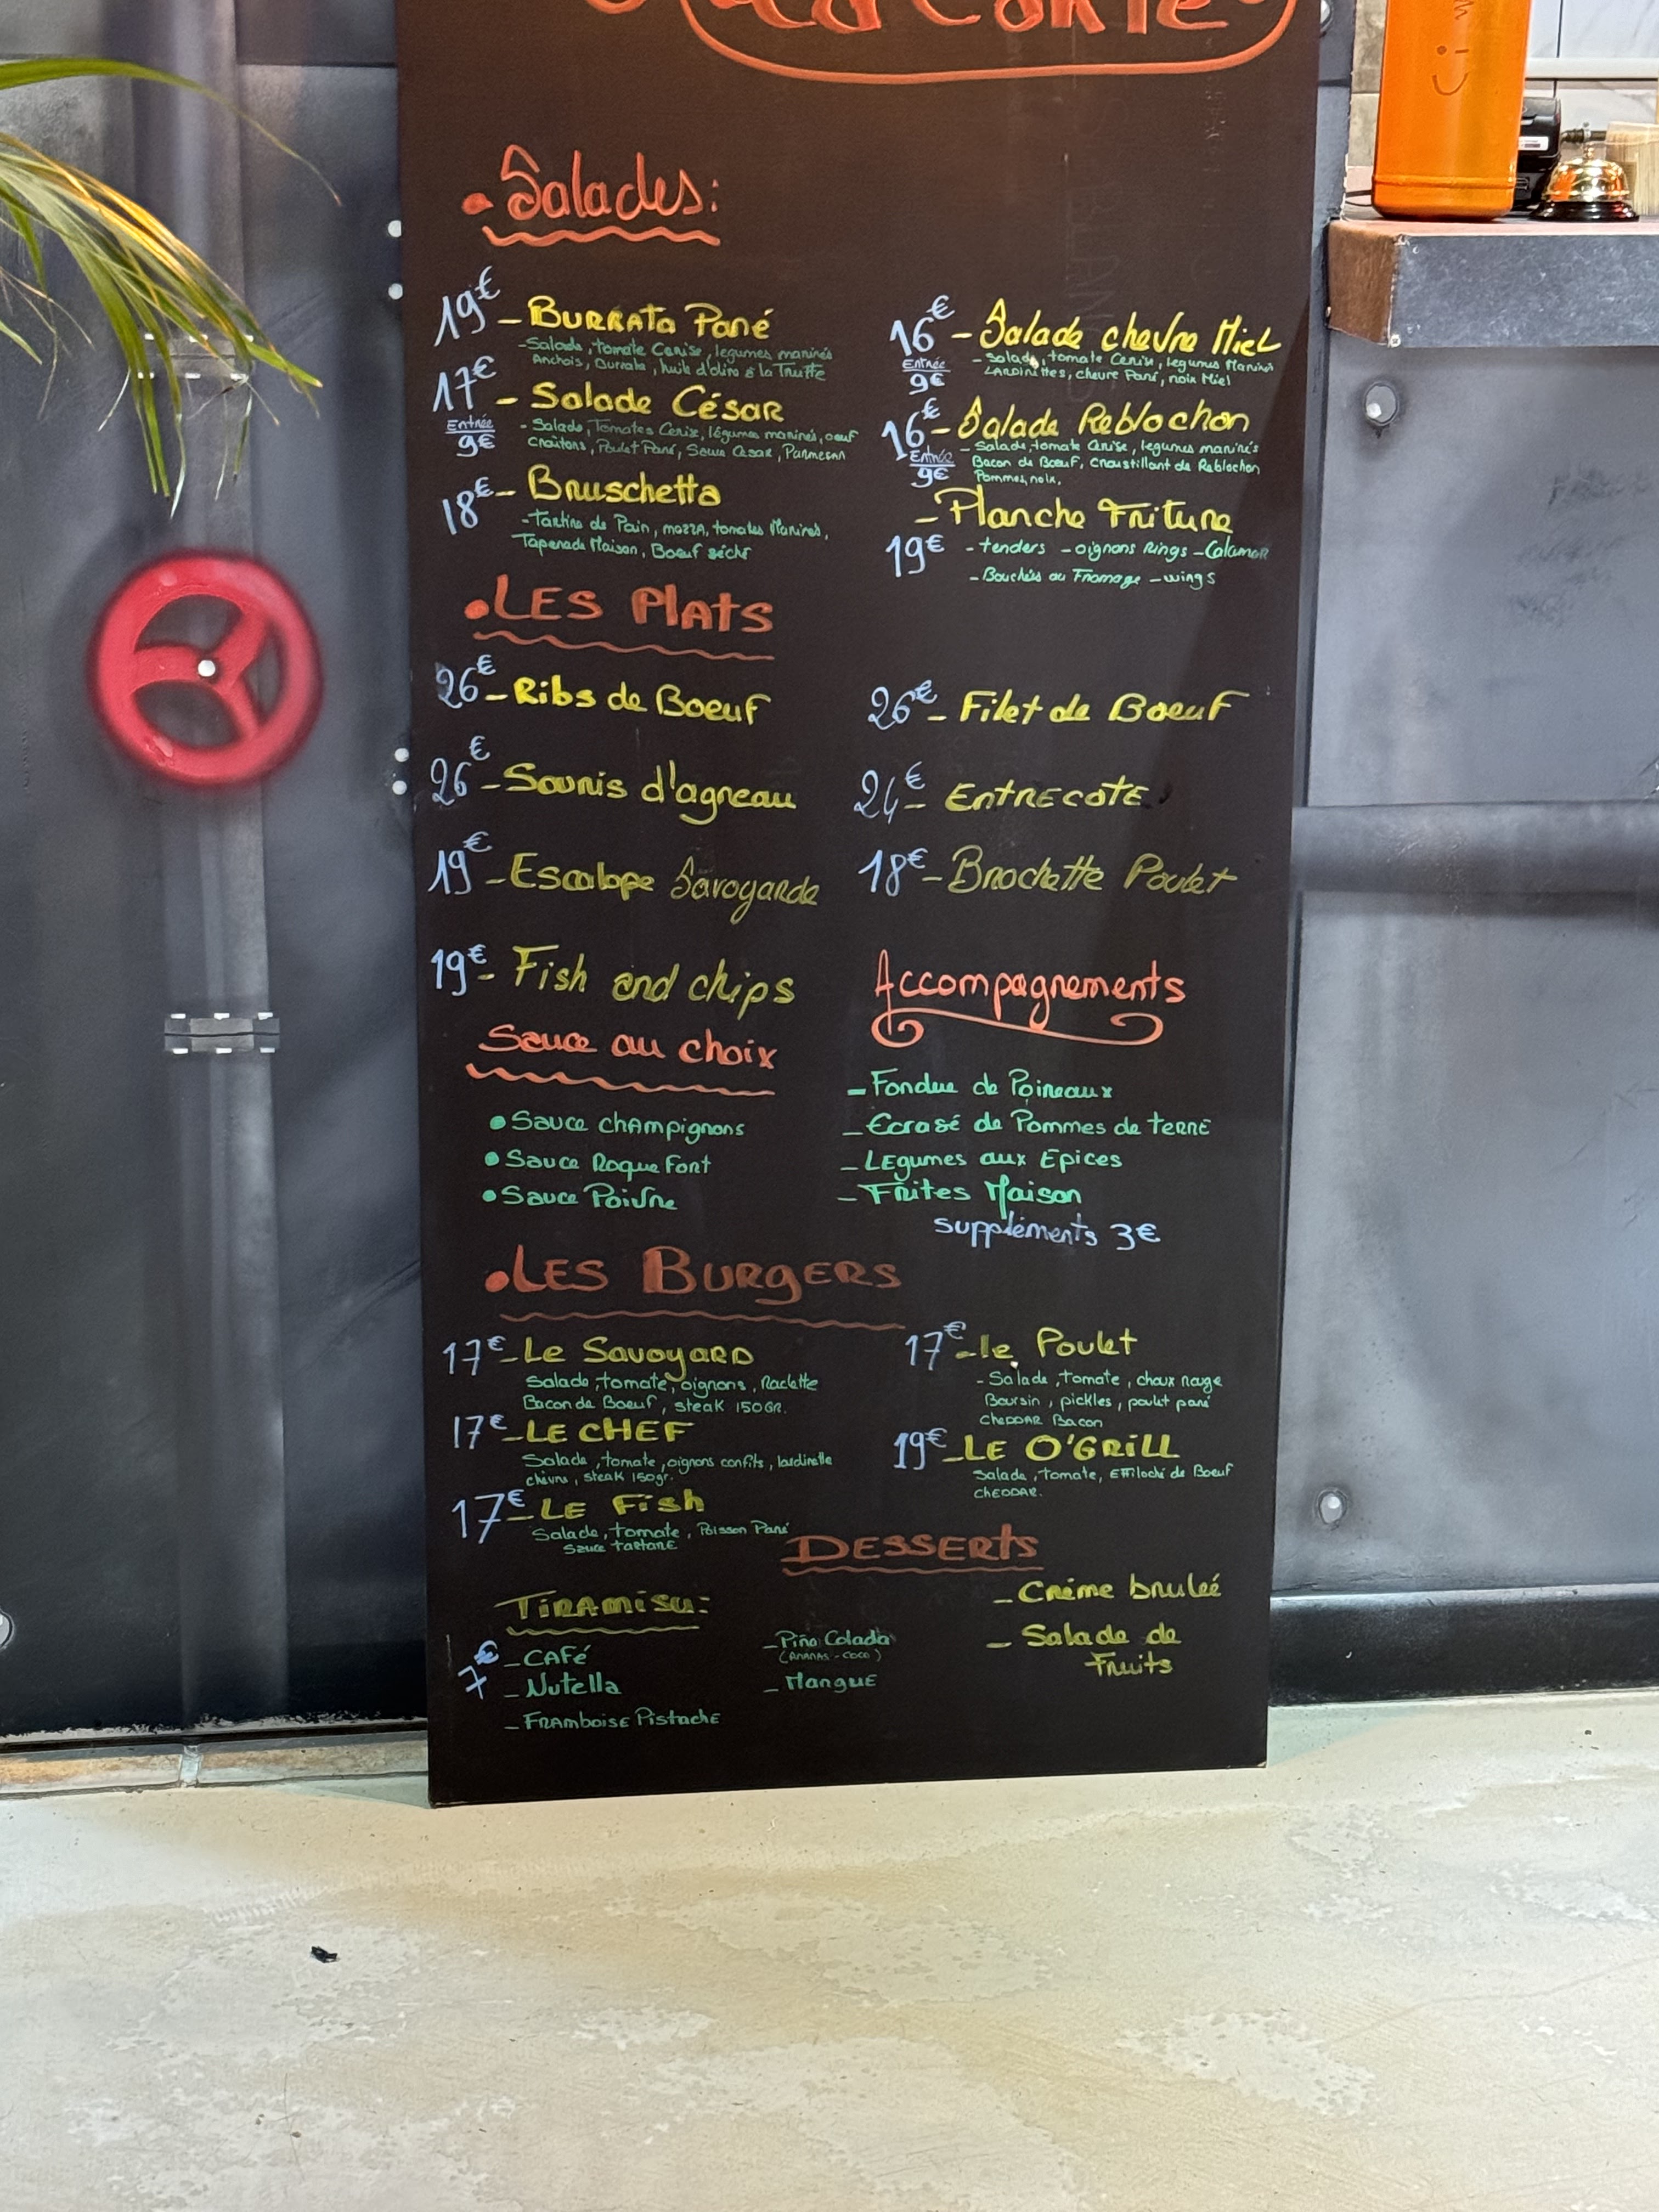 La Carte
• Salades:
19€ - BURRATA Pané
- Salade, tomate Cerise, legumes marinés
Anchois, Burrata, huile d'olive à la Truffe
17€ - Salade CÉSAR
Entrée 9€
- Salade, Tomates Cerise, légumes marinés, oeuf
Croûtons, Poulet Pané, Sauce César, Parmesan
18€ - Bruschetta
- Tartine de Pain, mozza, tomates Marinés,
Tapenade Maison, Boeuf séché
16€ - Salade chevre MieL
Entrée 9€
- Salade, tomate Cerise, légumes Marinés
LARDINETTES, chevre Pané, noix Miel
16€ - Salade Reblochon
Entrée 9€
- Salade, tomate Cerise, legumes marinés
Bacon de Bœuf, Croustillant de Reblochon
Pommes, noix.
- Planche Friture
19€ - tenders - oignons Rings - Calamar
- Bouchées au Fromage - wings
• LES PlATS
26€ - Ribs de Boeuf
26€ - Souris d'agneau
19€ - Escalope Savoyarde
19€ - Fish and chips
26€ - Filet de Boeuf
24€ - ENTRECOTE
18€ - Brochette Poulet
Sauce au choix
• Sauce chAmpignons
• Sauce Roquefort
• Sauce Poivre
Accompagnements
- Fondue de Poireaux
- Ecrasé de Pommes de terre
- LEgumes aux Epices
- Frites Maison
suppléments 3€
• LES BURgERS
17€ - Le SavoyaRD
Salade, tomate, oignons, Raclette
Bacon de Boeuf, steak 150GR.
17€ - LE CHEF
Salade, tomate, oignons confits, lardinette
chèvre, steak 150gr.
17€ - LE Fish
Salade, tomate, Poisson Pané
Sauce tartare
17€ - le Poulet
- Salade, tomate, choux rouge
Boursin, pickles, poulet pané
CheDDAR Bacon
19€ - LE O'GRiLL
Salade, tomate, Effiloché de Boeuf
CHEDDAR.
DESSERts
TiRAMiSU:
7€
- CAFé
- Nutella
- FRAmboise Pistache
- Pina Colada
(ANANAS - COCO)
- Mangue
- Crème bruleé
- Salade de
Fruits